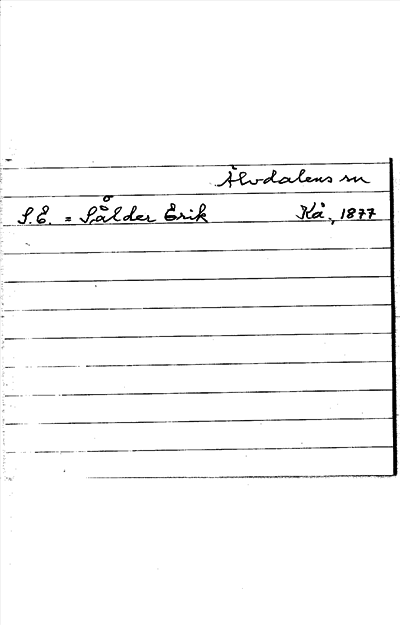 Älvdalens sn
S.E. = Sålder Erik Kå, 1877